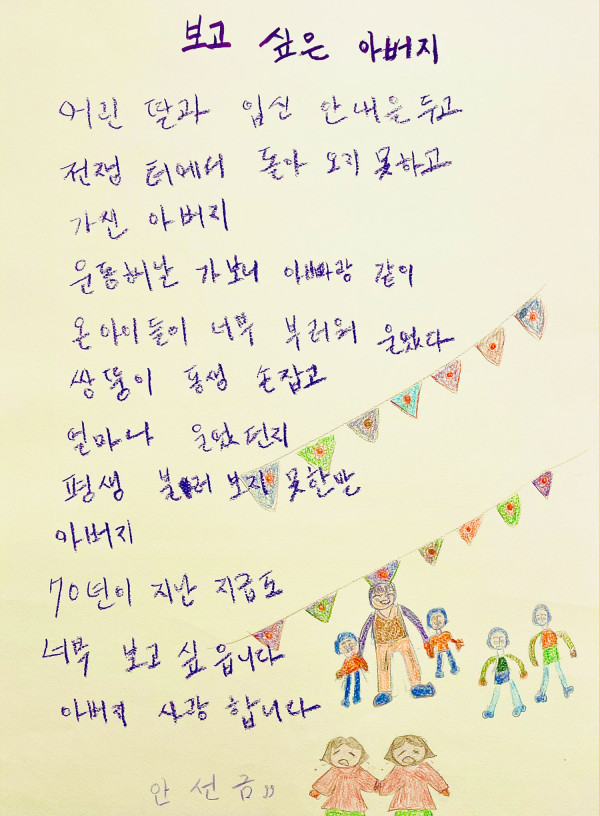 보고 싶은 아버지
어린 딸과 임신 안내을 두고
전쟁 터에서 돌아 오지 못하고
가신 아버지
운동회날 가보니 아빠랑 같이
온아이들이 너무 부러워 울었다
쌍둥이 동생 손잡고
얼마나 울었던지
평생 불러 보지 못한말
아버지
70년이 지난 지금도
너무 보고 싶습니다
아버지 사랑 합니다
안선금